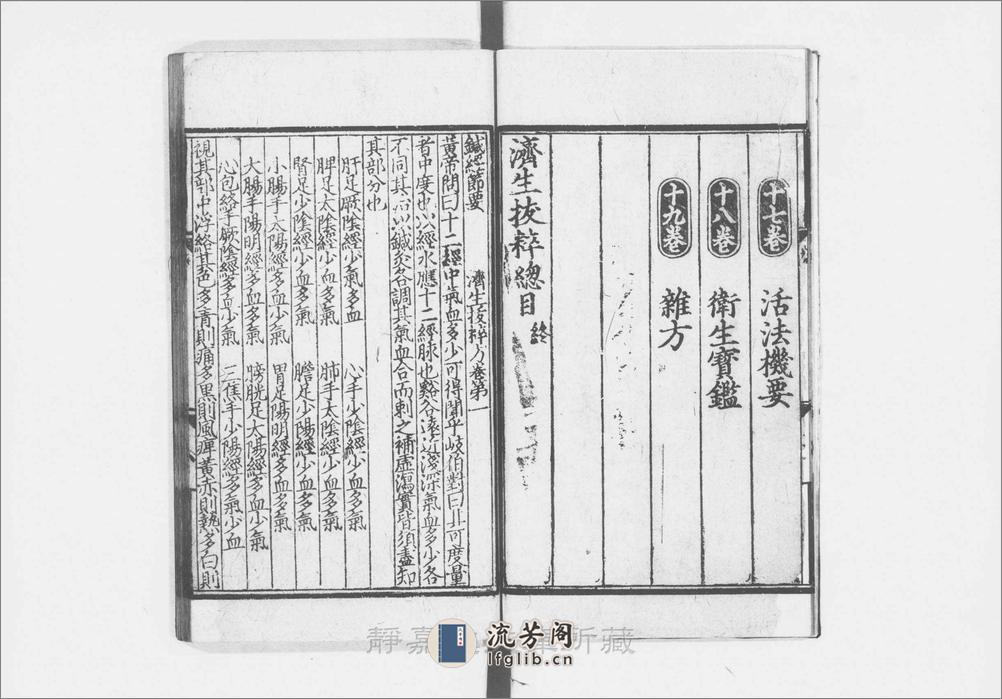 十七卷 活法機要
十八卷 衛生寶鑑
十九卷 雜方
濟生拔粹總目 終
鍼經節要 濟生拔粹方卷第一
黃帝問曰十二經中氣血多少可得聞乎岐伯對曰其可度量
者中度也以經水應十二經脉也谿谷遠近淺深氣血多少各
不同其治以鍼灸各調其氣血合而刺之補虛瀉實皆須盡知
其部分也
肝足厥陰經少氣多血 心手少陰經少血多氣
脾足太陰經少血多氣 肺手太陰經少血多氣
腎足少陰經少血多氣 膽足少陽經少血多氣
小腸手太陽經多血少氣 胃足陽明經多血多氣
大腸手陽明經多血多氣 膀胱足太陽經多血少氣
心包絡手厥陰經多血少氣 三焦手少陽經多氣少血
視其部中浮絡其色多青則痛多黑則風痺黃赤則熱多白則
靜嘉 所藏
流芳阁
lfglib.cn